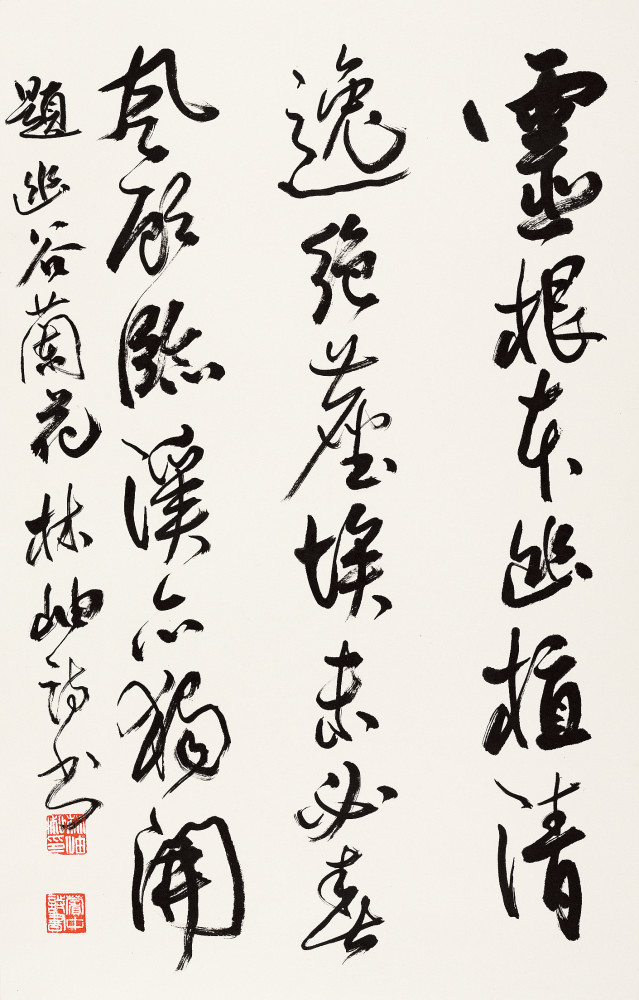 靈根本幽植清
逸絶塵埃未必春
風顧臨溪亦獨開
題幽谷蘭花林岫詩書
林岫